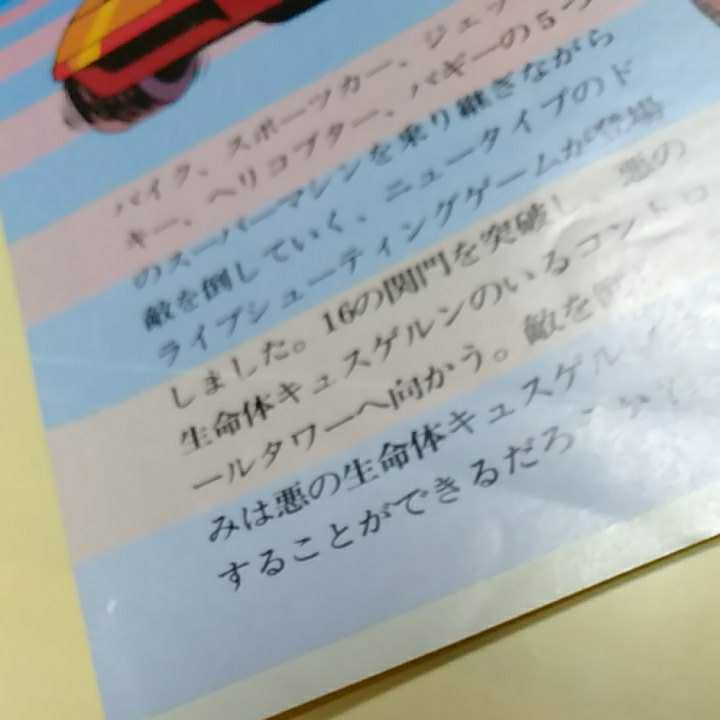 バイク、スポーツカー、ジェッ
キー、ヘリコプター、バギーの5つ
のスーパーマシンを乗り継ぎながら
敵を倒していく、ニュータイプのド
ライブシューティングゲームが登場
しました。16の関門を突破し、悪の
生命体キュスゲルンのいるコントロ
ールタワーへ向かう。敵を
みは悪の生命体キュスゲル
することができるだろ